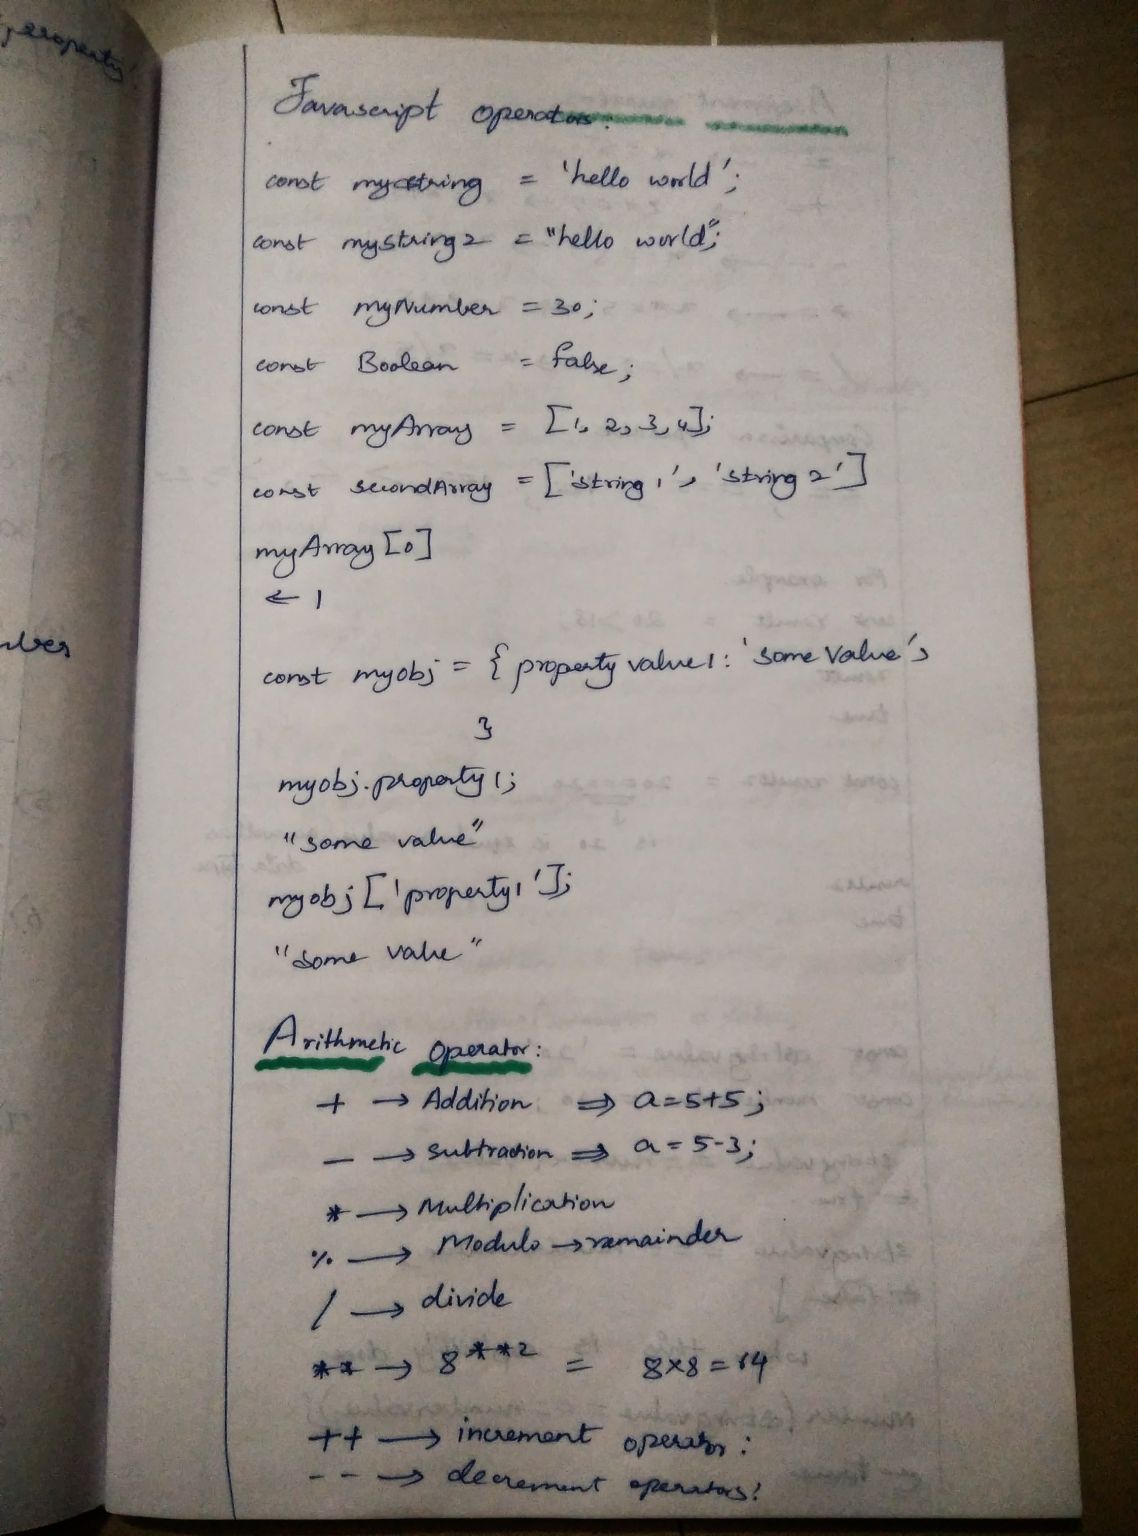 property'
mber
Javascript operators:
const mystring = 'hello world';
const mystring2 = "hello world";
const myNumber = 30;
const Boolean = false;
const myArray = [1, 2, 3, 4];
const secondArray = ['string1', 'string2']
myArray[0]
← 1
const myobj = { property value1: 'some value',
}
myobj.property1;
"some value"
myobj['property1'];
"some value"
Arithmetic operator:
+ → Addition ⇒ a=5+5;
- → subtraction ⇒ a = 5-3;
* → Multiplication
% → Modulo → remainder
/ → divide
** → 8**2 = 8×8=64
++ → increment operators:
-- → decrement operators: